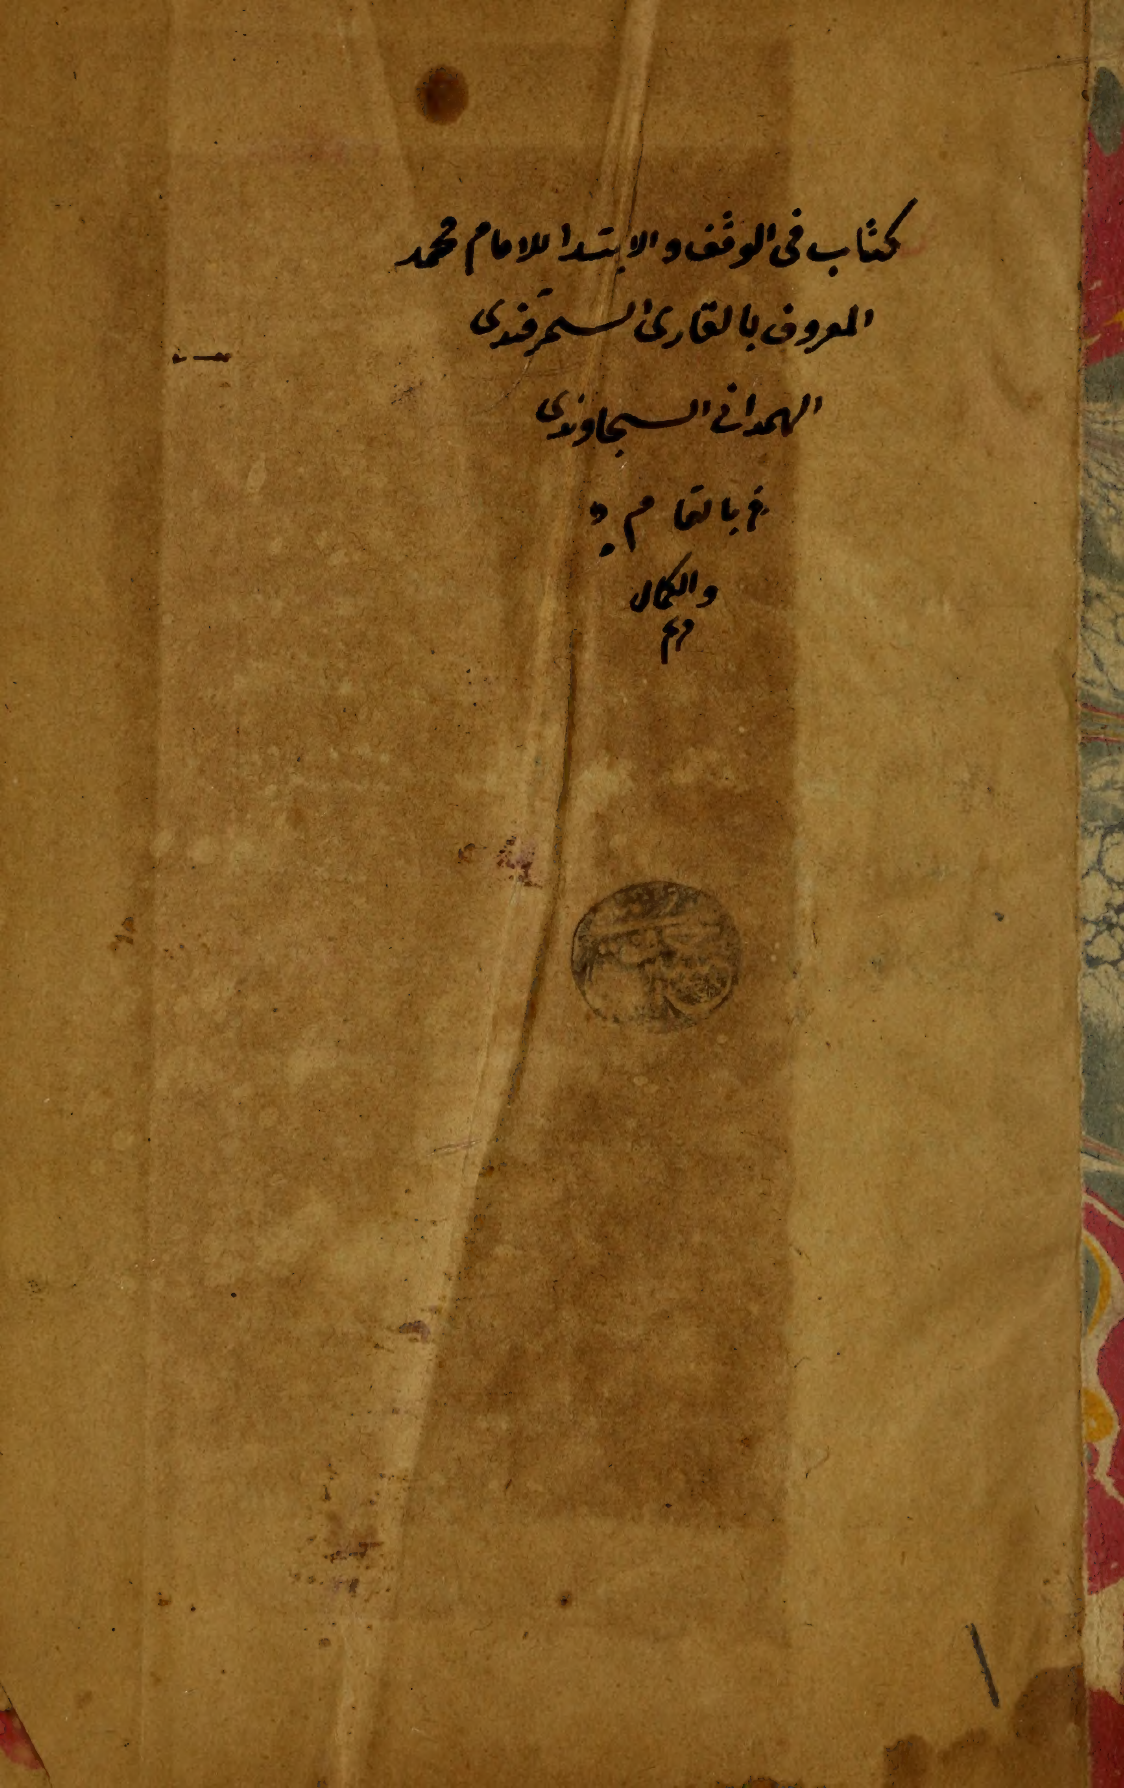 كتاب في الوقف والابتدا للامام محمد
المعروف بالقارئ السمرقندى
الهمدانى السجاوندى
بالتمام
والكمال
م م